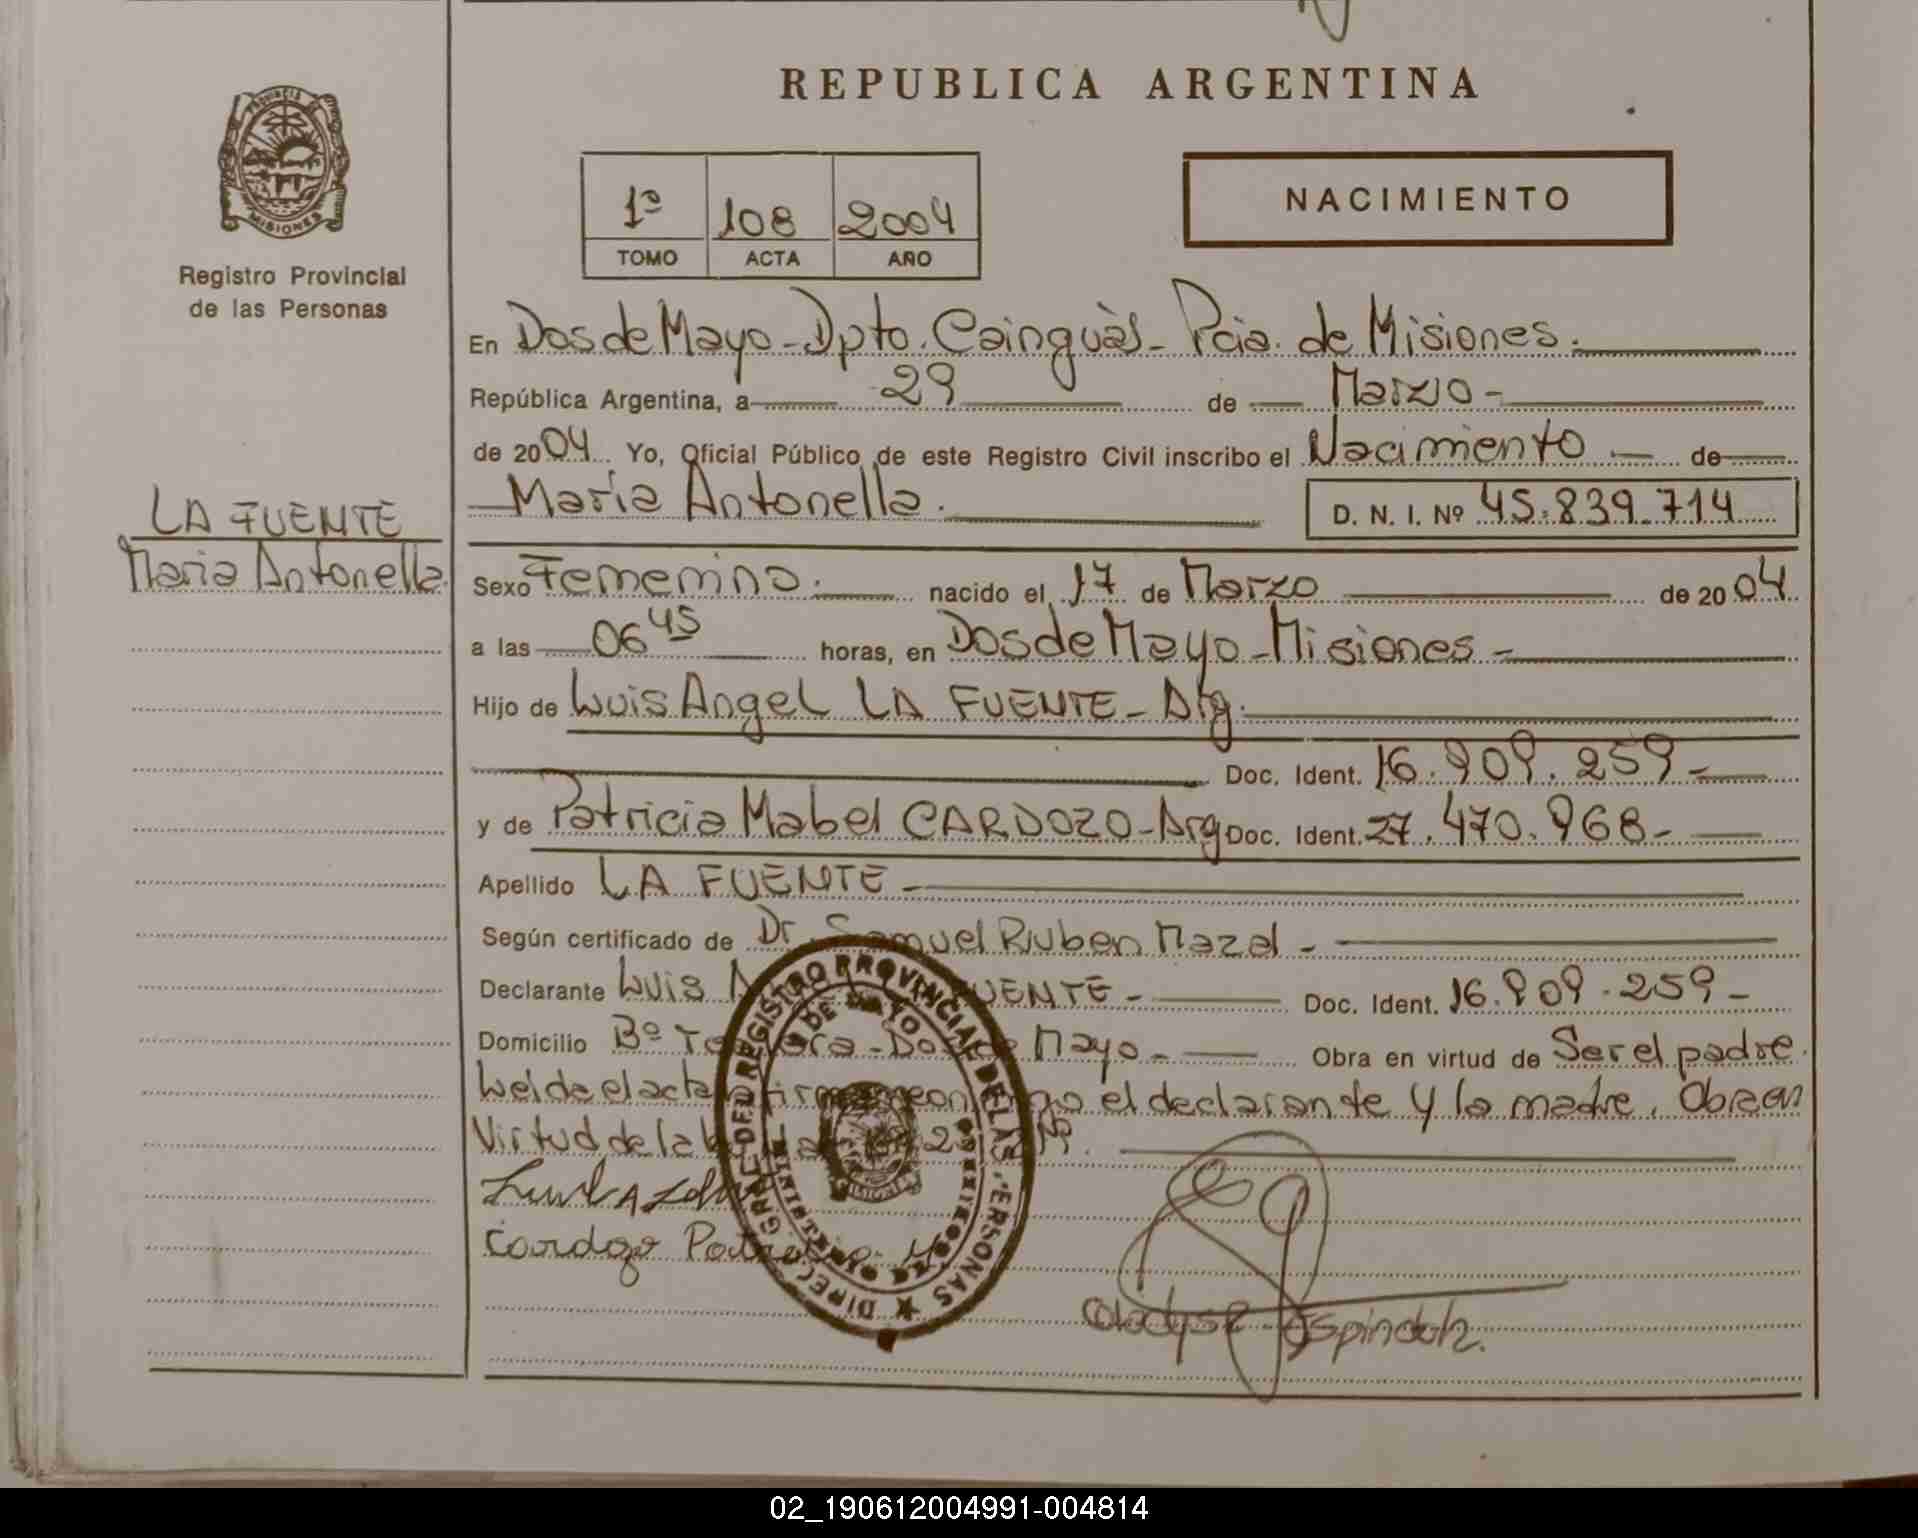 REPUBLICA ARGENTINA
PROVINCIA DE
MISIONES
Registro Provincial
de las Personas
1º 108 2004
TOMO ACTA AÑO
NACIMIENTO
En Dos de Mayo - Dpto. Cainguàs - Pcia. de Misiones.
República Argentina, a 29 de Marzo -
de 2004 Yo, Oficial Público de este Registro Civil inscribo el Nacimiento de
Maria Antonella.
D. N. I. Nº 45.839.714
LA FUENTE
Maria Antonella
Sexo Femenino. nacido el 17 de Marzo de 2004
a las 06 45 horas, en Dos de Mayo - Misiones -
Hijo de Luis Angel LA FUENTE - Arg.
Doc. Ident. 16.909.259 -
y de Patricia Mabel CARDOZO - Arg Doc. Ident. 27.470.968 -
Apellido LA FUENTE -
Según certificado de Dr. Samuel Ruben Mazal -
Declarante Luis UENTE - Doc. Ident. 16.909.259 -
Domicilio Bº Dos de Mayo - Obra en virtud de Ser el padre.
Leida el acta el declarante y la madre. Obra en
Virtud de la
Cardozo
DIREC. GRAL. DEL REGISTRO PROVINCIAL DE LAS PERSONAS
2 DE MAYO
MINISTERIO DE GOBIERNO
Gladys E. Espindola.
02_190612004991-004814